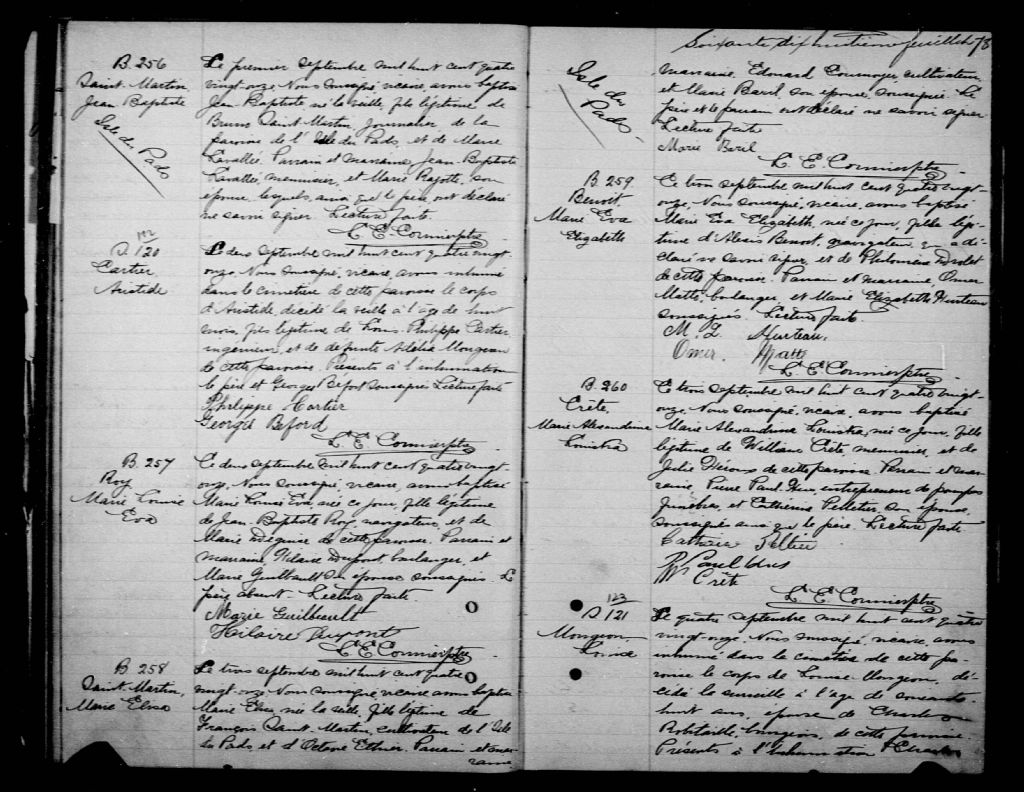 B. 256
Saint Martin
Jean Baptiste
Isle du Pads
Le premier septembre mil huit cent quatre
vingt-onze. Nous soussigné, vicaire, avons baptisé
Jean Baptiste, né la veille, fils légitime de
Bruno Saint Martin, journalier, de la
paroisse de l'Isle du Pads, et de Marie
Lavallée. Parrain et marraine, Jean-Baptiste
Lavallée, menuisier, et Marie Rajotte, son
épouse, lesquels, ainsi que le père, ont déclaré
ne savoir signer. Lecture faite.
L. E. Cormier ptre
122
S 120
Cartier
Aristide
Le deux septembre mil huit cent quatre vingt-
onze, Nous soussigné, vicaire, avons inhumé
dans le cimetière de cette paroisse le corps
d'Aristide, décédé la veille à l'âge de huit
mois, fils légitime de Louis Philippe Cartier,
ingénieur, et de défunte Adélia Mongeon
de cette paroisse. Présents à l'inhumation
le père et Georges Beford soussignés Lecture faite
Philippe Cartier
Georges Beford
L. E. Cormier ptre
B. 257
Roy
Marie Louise
Eva
Le deux septembre mil huit cent quatre vingt-
onze, Nous soussigné, vicaire, avons baptisé
Marie Louise Eva née ce jour, fille légitime
de Jean-Baptiste Roy, navigateur, et de
Marie Deguise de cette paroisse. Parrain et
marraine, Hilaire Dupont, boulanger, et
Marie Guilbault son épouse soussignés. Le
père absent. Lecture faite.
Marie Guilbeault
Hilaire Dupont
L. E. Cormier ptre
B. 258
Saint Martin,
Marie Elisa
Le trois septembre mil huit cent quatre
vingt-onze Nous soussigné vicaire avons baptisé
Marie Elisa née la veille, fille légitime de
François Saint Martin, cultivateur de l'Isle
du Pads et d'Octavie Ethier. Parrain et mar-
raine
Soixante dix huitième feuillet 78
Isle du
Pads
marraine, Edouard Cournoyer cultivateur
et Marie Baril, son épouse, soussignée. Le
père et le parrain ont déclaré ne savoir signer
Lecture faite
Marie Beril
L. E. Cormier ptre
B. 259
Benoit
Marie Eva
Elizabeth
Le trois septembre mil huit cent quatre vingt-
onze, Nous soussigné, vicaire, avons baptisé
Marie Eva Elizabeth, née ce jour, fille légi-
time d'Alexis Benoit, navigateur, qui a dé-
claré ne savoir signer, et de Philomène Drolet
de cette paroisse. Parrain et marraine, Omer
Matte, boulanger, et Marie Elizabeth Hurteau
soussignés. Lecture faite.
M. L. Hurteau.
Omer. Matte
L. E. Cormier ptre
B. 260
Crête,
Marie Alexandrina
Le trois septembre mil huit cent quatre vingt-
onze, Nous soussigné, vicaire, avons baptisé
Marie Alexandrina née ce jour, fille
légitime de William Crête, menuisier, et de
Julie de cette paroisse Parrain et mar-
raine Pierre Paul Hus, entrepreneur de pompes
funèbres, et Catherine Pelletier, son épouse,
soussignés ainsi que le père. Lecture faite
Catherine Peltier
P. Paul Hus
Wm Crête
L. E. Cormier ptre
123
S 121
Mongeon
Louise
Le quatre septembre mil huit cent quatre
vingt-onze, Nous soussigné, vicaire, avons
inhumé dans le cimetière de cette pa-
roisse le corps de Louise Mongeon, dé-
cédée la surveille à l'âge de soixante
huit ans, épouse de Charles
Robitaille, bourgeois, de cette paroisse.
Présents à l'inhumation Charles